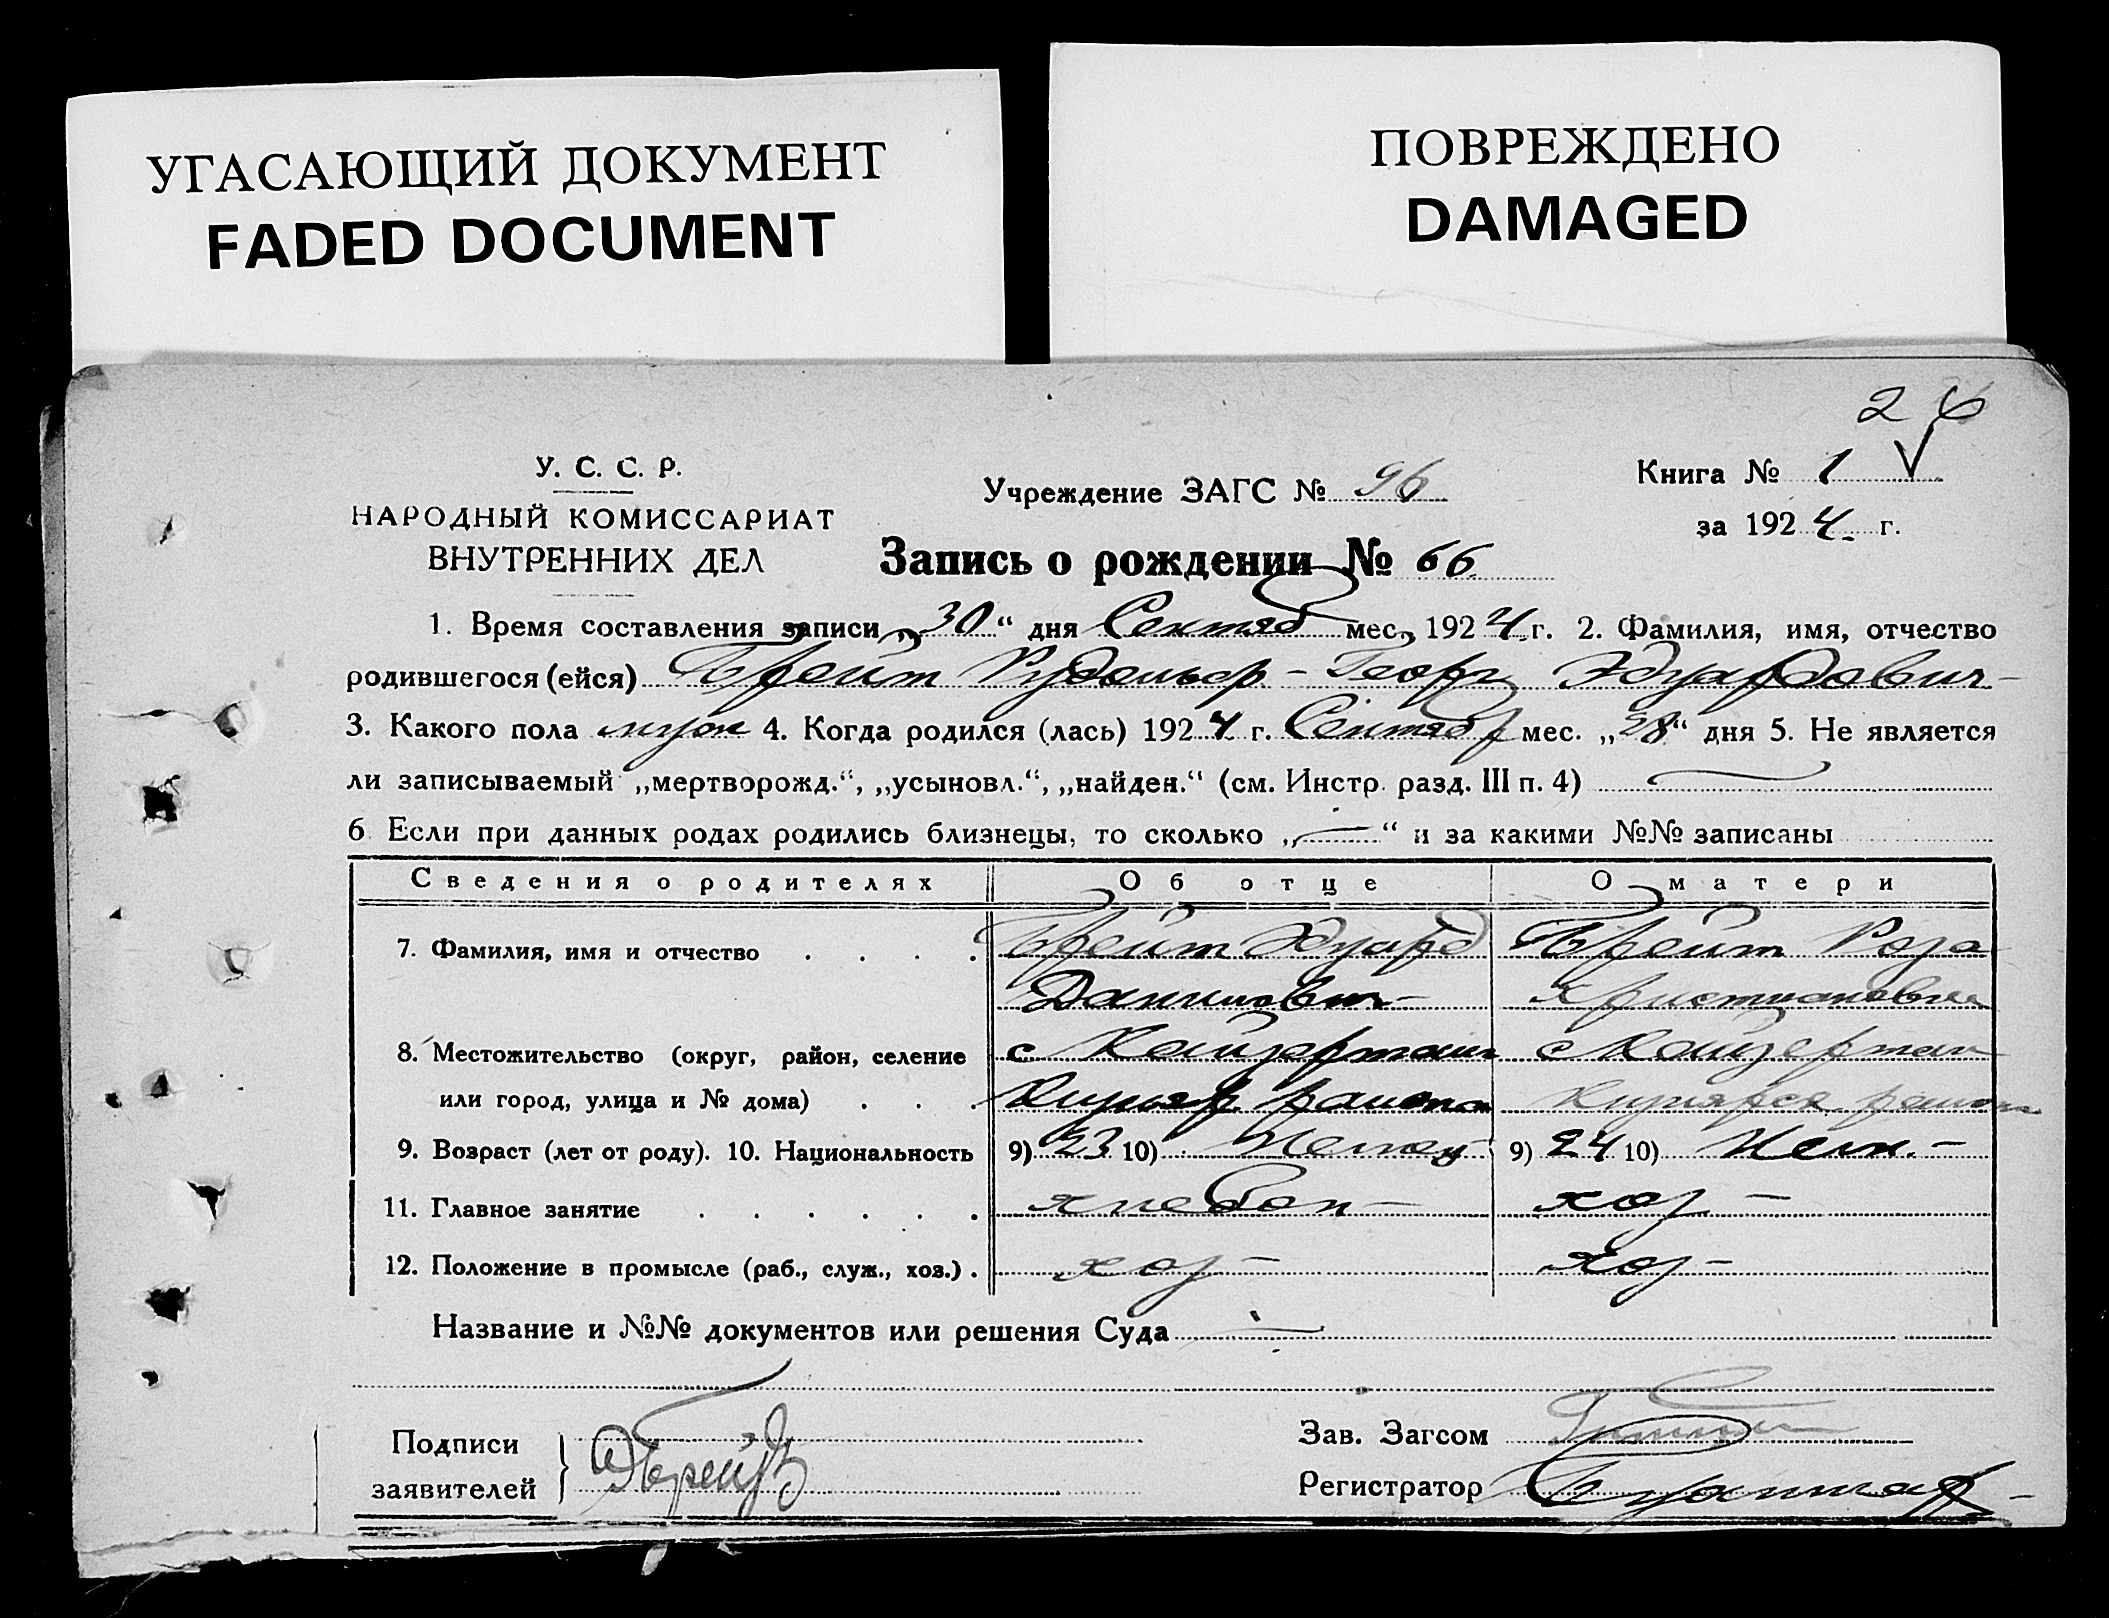 УГАСАЮЩИЙ ДОКУМЕНТ
FADED DOCUMENT
ПОВРЕЖДЕНО
DAMAGED
26
У. С. С. Р.
НАРОДНЫЙ КОМИССАРИАТ
ВНУТРЕННИХ ДЕЛ
Учреждение ЗАГС № 96
Книга № 1 V
за 1924 г.
Запись о рождении № 66
1. Время составления записи „30“ дня Сентяб мес. 1924 г. 2. Фамилия, имя, отчество
родившегося (ейся) Брейт Рудольф-Георг Эдуардович-
3. Какого пола муж 4. Когда родился (лась) 1924 г. Сентябр мес. „28“ дня 5. Не является
ли записываемый „мертворожд.“, „усыновл.“, „найден.“ (см. Инстр. разд. III п. 4) —
6 Если при данных родах родились близнецы, то сколько „—“ и за какими №№ записаны
Сведения о родителях Об отце О матери
7. Фамилия, имя и отчество . . . . Брейт Эдуард Брейт Роза
Данилович- Христиановна
8. Местожительство (округ, район, селение с Кайзерталь с Кайзертал
или город, улица и № дома) . . . района район
9. Возраст (лет от роду). 10. Национальность 9) 23 10) Немец 9) 24 10) Нем. -
11. Главное занятие . . . . . . хлебоп- хоз-
12. Положение в промысле (раб., служ., хоз.) . хоз- хоз-
Название и №№ документов или решения Суда —
Подписи
заявителей
Э Брейт
Зав. Загсом
Регистратор